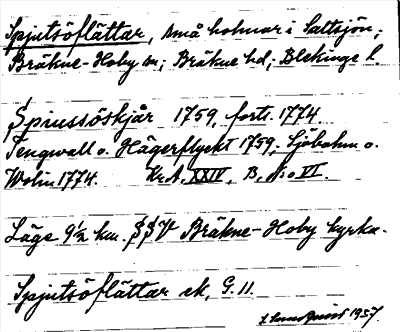 Spjutsöflättar, små holmar i Saltsjön;
Bräkne-Hoby sn; Bräkne hd; Blekinge l.
Spiussöskjär 1759, forts. 1774
Tengwall o. Hägerflyckt 1759; Sjöbohm o.
Wolin 1774. Kr.A. XXIV, B, N:o VI.
Läge 9½ km. SSV Bräkne-Hoby kyrka.
Spjutsöflättar ek, G. 11.
1957